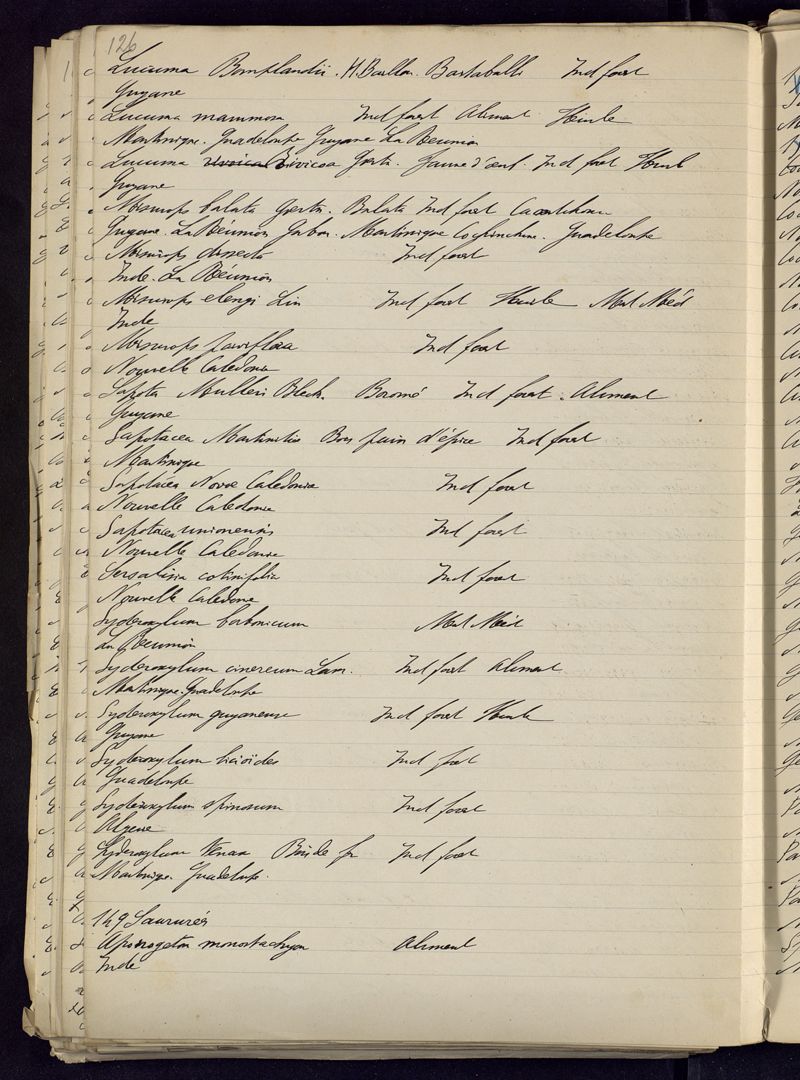 126
Lucuma Bonplandii. H. Baillon. Bartaballi Ind forest
Guyane
Lucuma mammosa Ind forest Aliment Huile
Martinique. Guadeloupe Guyane La Réunion
Lucuma Rivicoa Gærtn. Jaune d'œuf. Ind forest Huil
Guyane
Mimusops balata Gærtn. Balata Ind forest Caoutchouc
Guyane. La Réunion Gabon. Martinique Cochinchine. Guadeloupe
Mimusops dissecta Ind forest
Inde. La Réunion
Mimusops elengi Lin Ind forest Huile Mat Méd
Inde
Mimusops parviflora Ind forest
Nouvelle Calédonie
Sapota Mulleri Bleck. Ind forest. Aliment
Guyane
Sapotacea Bois pain d'épice Ind forest
Martinique
Sapotacea Novæ Caledoniæ Ind forest
Nouvelle Calédonie
Sapotacea unionensis Ind forest
Nouvelle Calédonie
Sersalisia cotinifolia Ind forest
Nouvelle Calédonie
Syderoxylum borbonicum Mat Méd
La Réunion
Syderoxylum cinereum Lam. Ind forest Aliment
Martinique. Guadeloupe
Syderoxylum guyanense Ind forest Huile
Guyane
Syderoxylum Ind forest
Guadeloupe
Syderoxylum spinosum Ind forest
Algerie
Syderoxylum Bois de fer Ind forest
Martinique. Guadeloupe.
149 Saururées
Aponogeton monostachyon Aliment
Inde